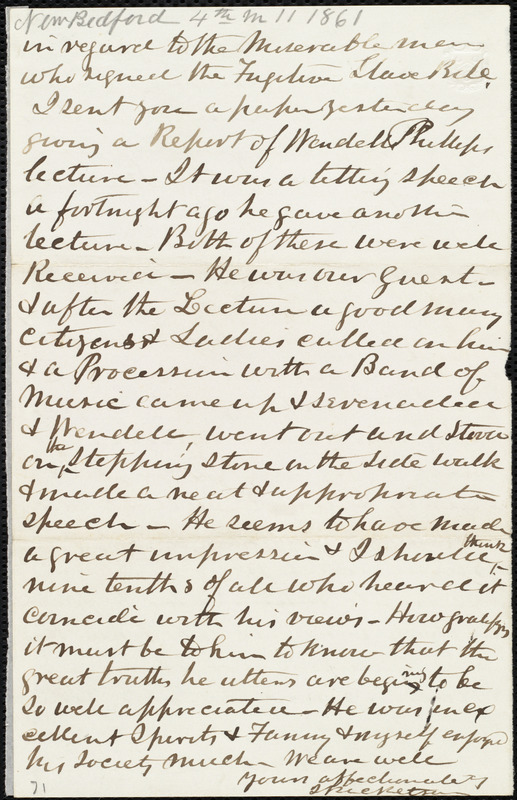 New Bedford 4th m 11 1861
in regard to the Miserable men
who signed the Fugitive Slave Bill.
I sent you a paper yesterday
giving a Report of Wendell Phillips
lecture - It was a telling speech
a fortnight ago he gave another
lecture - Both of these were well
Received - He was our Guest -
& after the Lecture a good many
Citizens & Ladies called on him
& a Procession with a Band of
Music came up & serenaded
& Wendell, went out and stood
on the Stepping Stone on the Side walk
& made a neat & appropriate
speech - He seems to have made
a great impression & I should think,
nine tenths of all who heard it
coincide with his views - How gratifying
it must be to him to know that the
great truths he utters are beginning to be
so well appreciated - He was in ex
cellent Spirits & Fanny & myself enjoyed
his Society much - We are well
Yours affectionately
J Ricketson
71